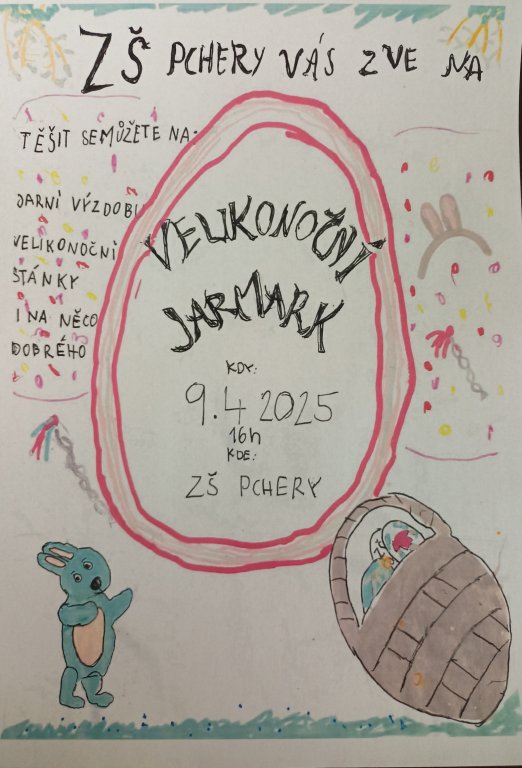 ZŠ PCHERY VÁS ZVE NA
TĚŠIT SE MŮŽETE NA:
JARNÍ VÝZDOBU
VELIKONOČNÍ
STÁNKY
I NA NĚCO
DOBRÉHO
VELIKONOČNÍ
JARMARK
KDY:
9.4 2025
16h
KDE:
ZŠ PCHERY